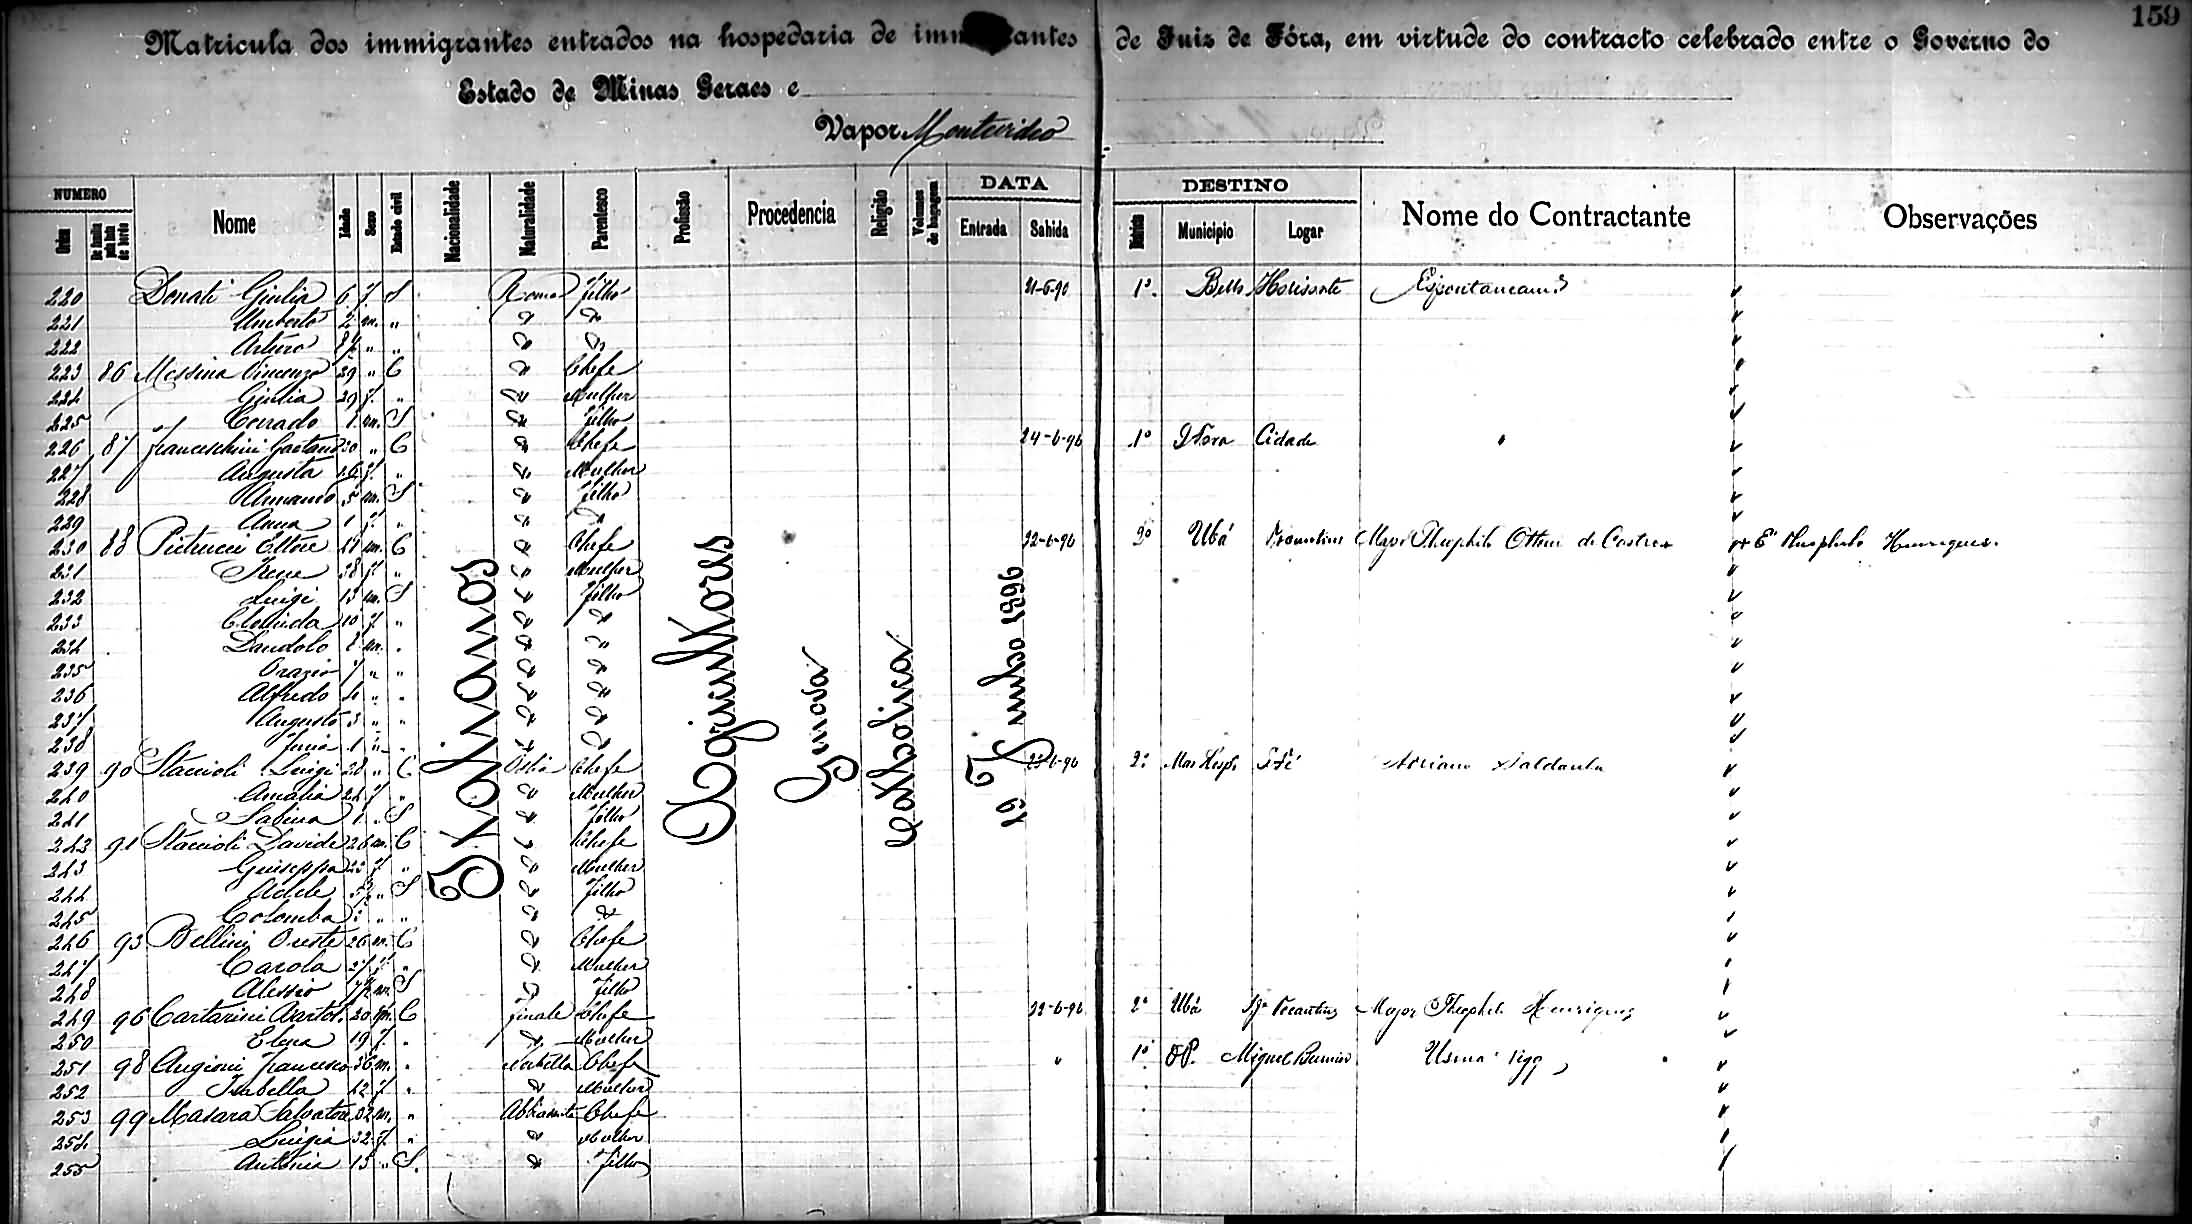 159
Matricula dos immigrantes entrados na hospedaria de imm antes de Juiz de Fóra, em virtude do contracto celebrado entre o Governo do
Estado de Minas Geraes e
Vapor Montevideo
NUMERO DATA DESTINO
Ordem De familia pela lista de bordo Nome Idade Sexo Estado civil Nacionalidade Naturalidade Parentesco Profissão Procedencia Religião Volumes de bagagem Entrada Sahida Districto Municipio Logar Nome do Contractante Observações
Italianos
Agricultores
Genova
Catholica
19 Junho 1896
220 Donati Giulia 6 f. S Roma filho 21-6-90 1º. Bello Horisonte
221 Umberto 2 m. "
222 Arturo " "
223 86 Messina Vincenzo 29 " C Chefe
224 Giulia 29 f. " Mulher
225 Corrado 1 m. S filho
226 87 Franceschini Gaetano 30 " C Chefe 24-6-96 1º Cidade
227 Augusta 26 f. " Mulher
228 Armando 5 m. S filho
229 Anna 1 f. "
230 88 Pietrucci Ettore m. C Chefe 22-6-96 2º Ubá Major Theophilo Ottoni de Castro Theophilo Henriques.
231 Irene 38 f. " Mulher
232 Luigi 13 m. S filho
233 Clorinda 10 f. "
234 Dandolo 8 m. "
235 Orazio 7 " "
236 Alfredo 4 " "
237 Augusto 3 " "
238 1 "
239 90 Staccioli Luigi 28 " C Ostia Chefe 23-6-96 2º Mar Hesp. Adriano Saldanha
240 Amalia 24 f. " Mulher
241 Sabina 1 " S filho
242 91 Staccioli Davide 26 m. C Chefe
243 Giuseppa 22 f. " Mulher
244 Adele " S filho
245 Colomba " "
246 93 Bellini Oreste 26 m. C Chefe
247 Carola 27 f. " Mulher
248 Alessio m. S filho
249 96 Cartarini Bartol. 20 m. C Finale Chefe 22-6-96 2º Ubá Major Theophilo Henriques
250 Elena 19 f. " Mulher
251 98 Angioni Francesco 36 m. " Chefe " 1º O P. Miguel Burnier Usina Wigg
252 Isabella 42 f. " Mulher
253 99 Masara Salvatore 32 m. " Chefe
254 Luigia 32 f. " Mulher
255 Antonia 13 " S. filho